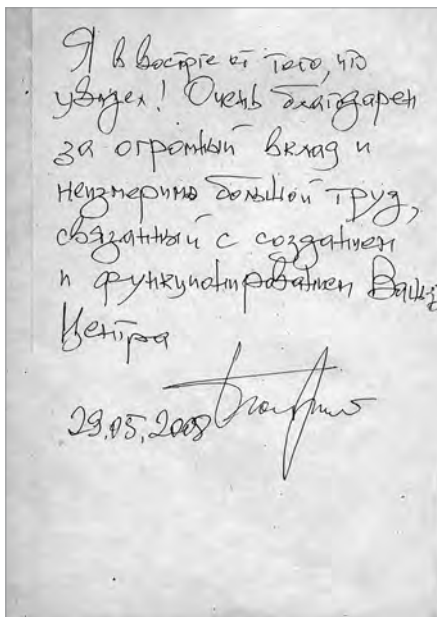 Я в восторге от того, что
увидел! Очень благодарен
за огромный вклад и
неизмеримо большой труд,
связанный с созданием
и функционированием Ваше
Центра
29.05.2008